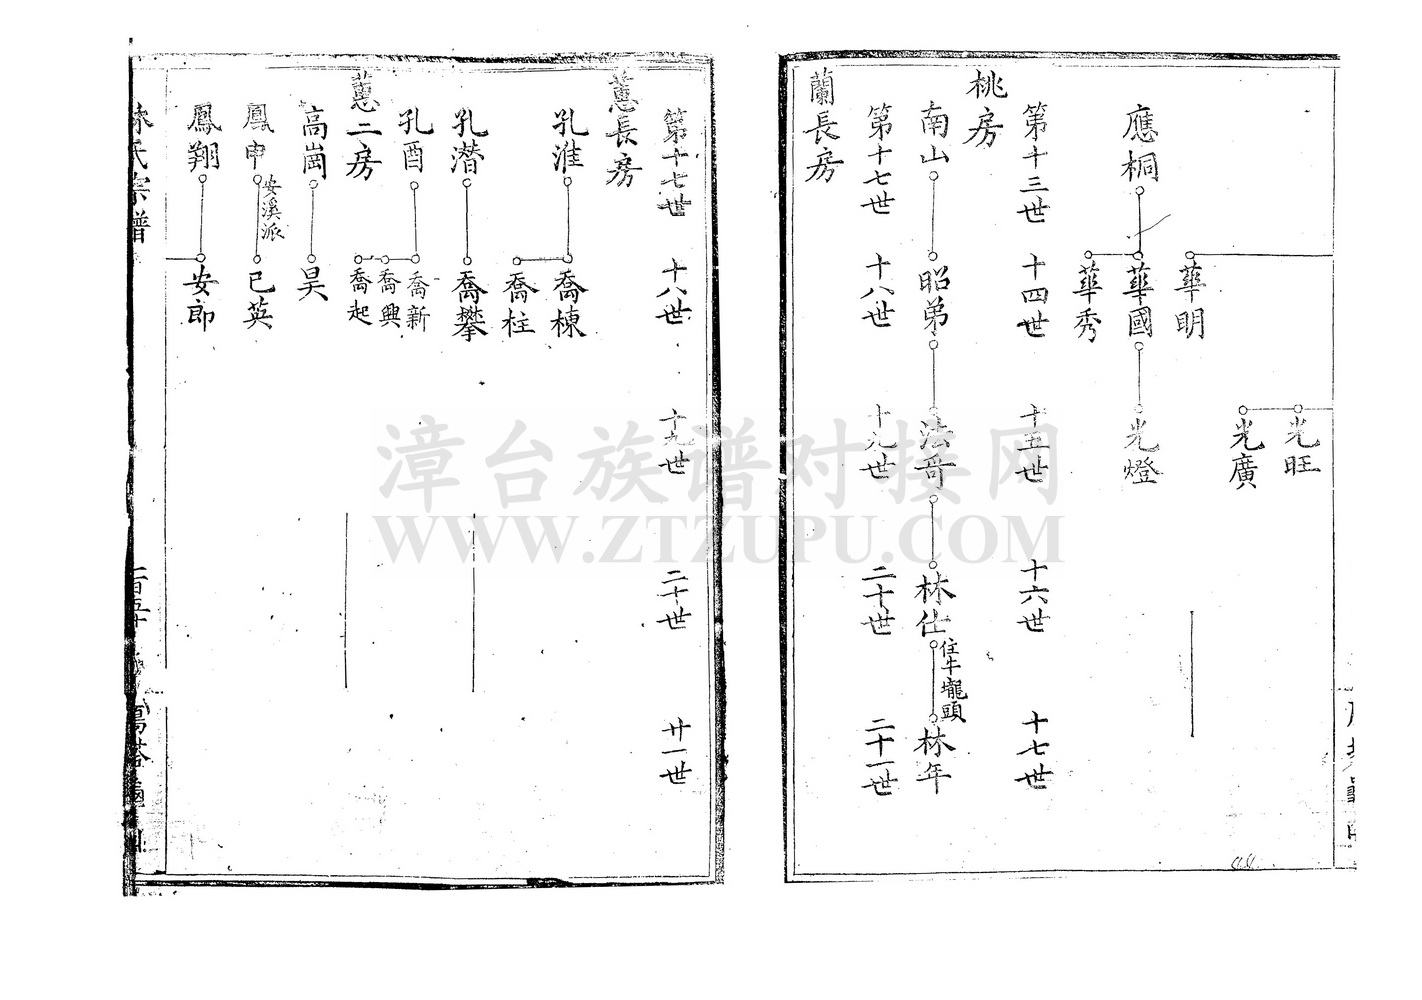 光旺
光廣
華明
應桐
華國
光燈
華秀
第十三世
十四世
十五世
十六世
十七世
桃房
南山
昭弟
法奇
林仕
住牛壠頭
林年
第十七世
十八世
十九世
二十世
二十一世
蘭長房
第十七世
十八世
十九世
二十世
廿一世
蕙長房
孔淮
喬棟
喬柱
孔潛
喬攀
孔酉
喬新
喬興
喬起
蕙二房
高崗
昊
鳳申
安溪派
已英
鳳翔
安郎
林氏宗譜
漳台族谱对接网
WWW.ZTZUPU.COM